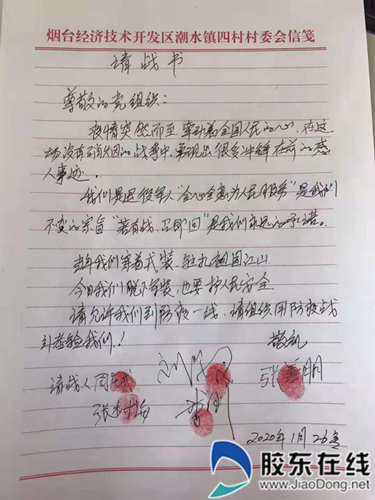 烟台经济技术开发区潮水镇四村村委会信笺
请战书
尊敬的党组织:
疫情突然而至 牵动着全国人民的心,在这
场没有硝烟的战争中,涌现出很多冲锋在前的感
人事迹。
我们是退役军人"全心全意为人民服务"是我们
不变的宗旨"若有战,召即回"是我们永远的承诺。
当年我们穿着戎装,驻扎祖国江山
今日我们脱下军装,也要护人民安全
请允许我们到防疫一线,请组织用防疫战
斗考验我们!
敬礼
请战人
2020年1月26
胶东在线
www.JiaoDong.net